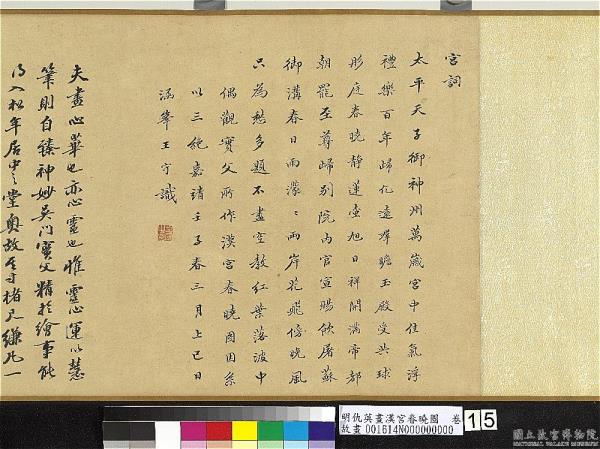 宮詞
太平天子御神州萬歲宮中佳氣浮
禮樂百年歸化遠羣瞻玉殿受共球
彤庭春曉靜蓬壺旭日祥開滿帝都
朝罷至尊歸別院內官宣賜飲屠蘇
御溝春日雨濛〻兩岸花飛傍晚風
只為愁多題不盡空教紅葉落波中
偶觀實父所作漢宮春曉圖因系
以三絕嘉靖壬子春三月上巳日
涵峯王守識
夫畫心華也亦心靈也惟靈心運以慧
筆則自臻神妙吳門實父精於繪事能
入松年居中之堂奧故尺縑凡一
明仇英畫漢宮春曉圖 卷
故畫 001614N000000000
15
國立故宮博物院
NATIONAL PALACE MUSEUM